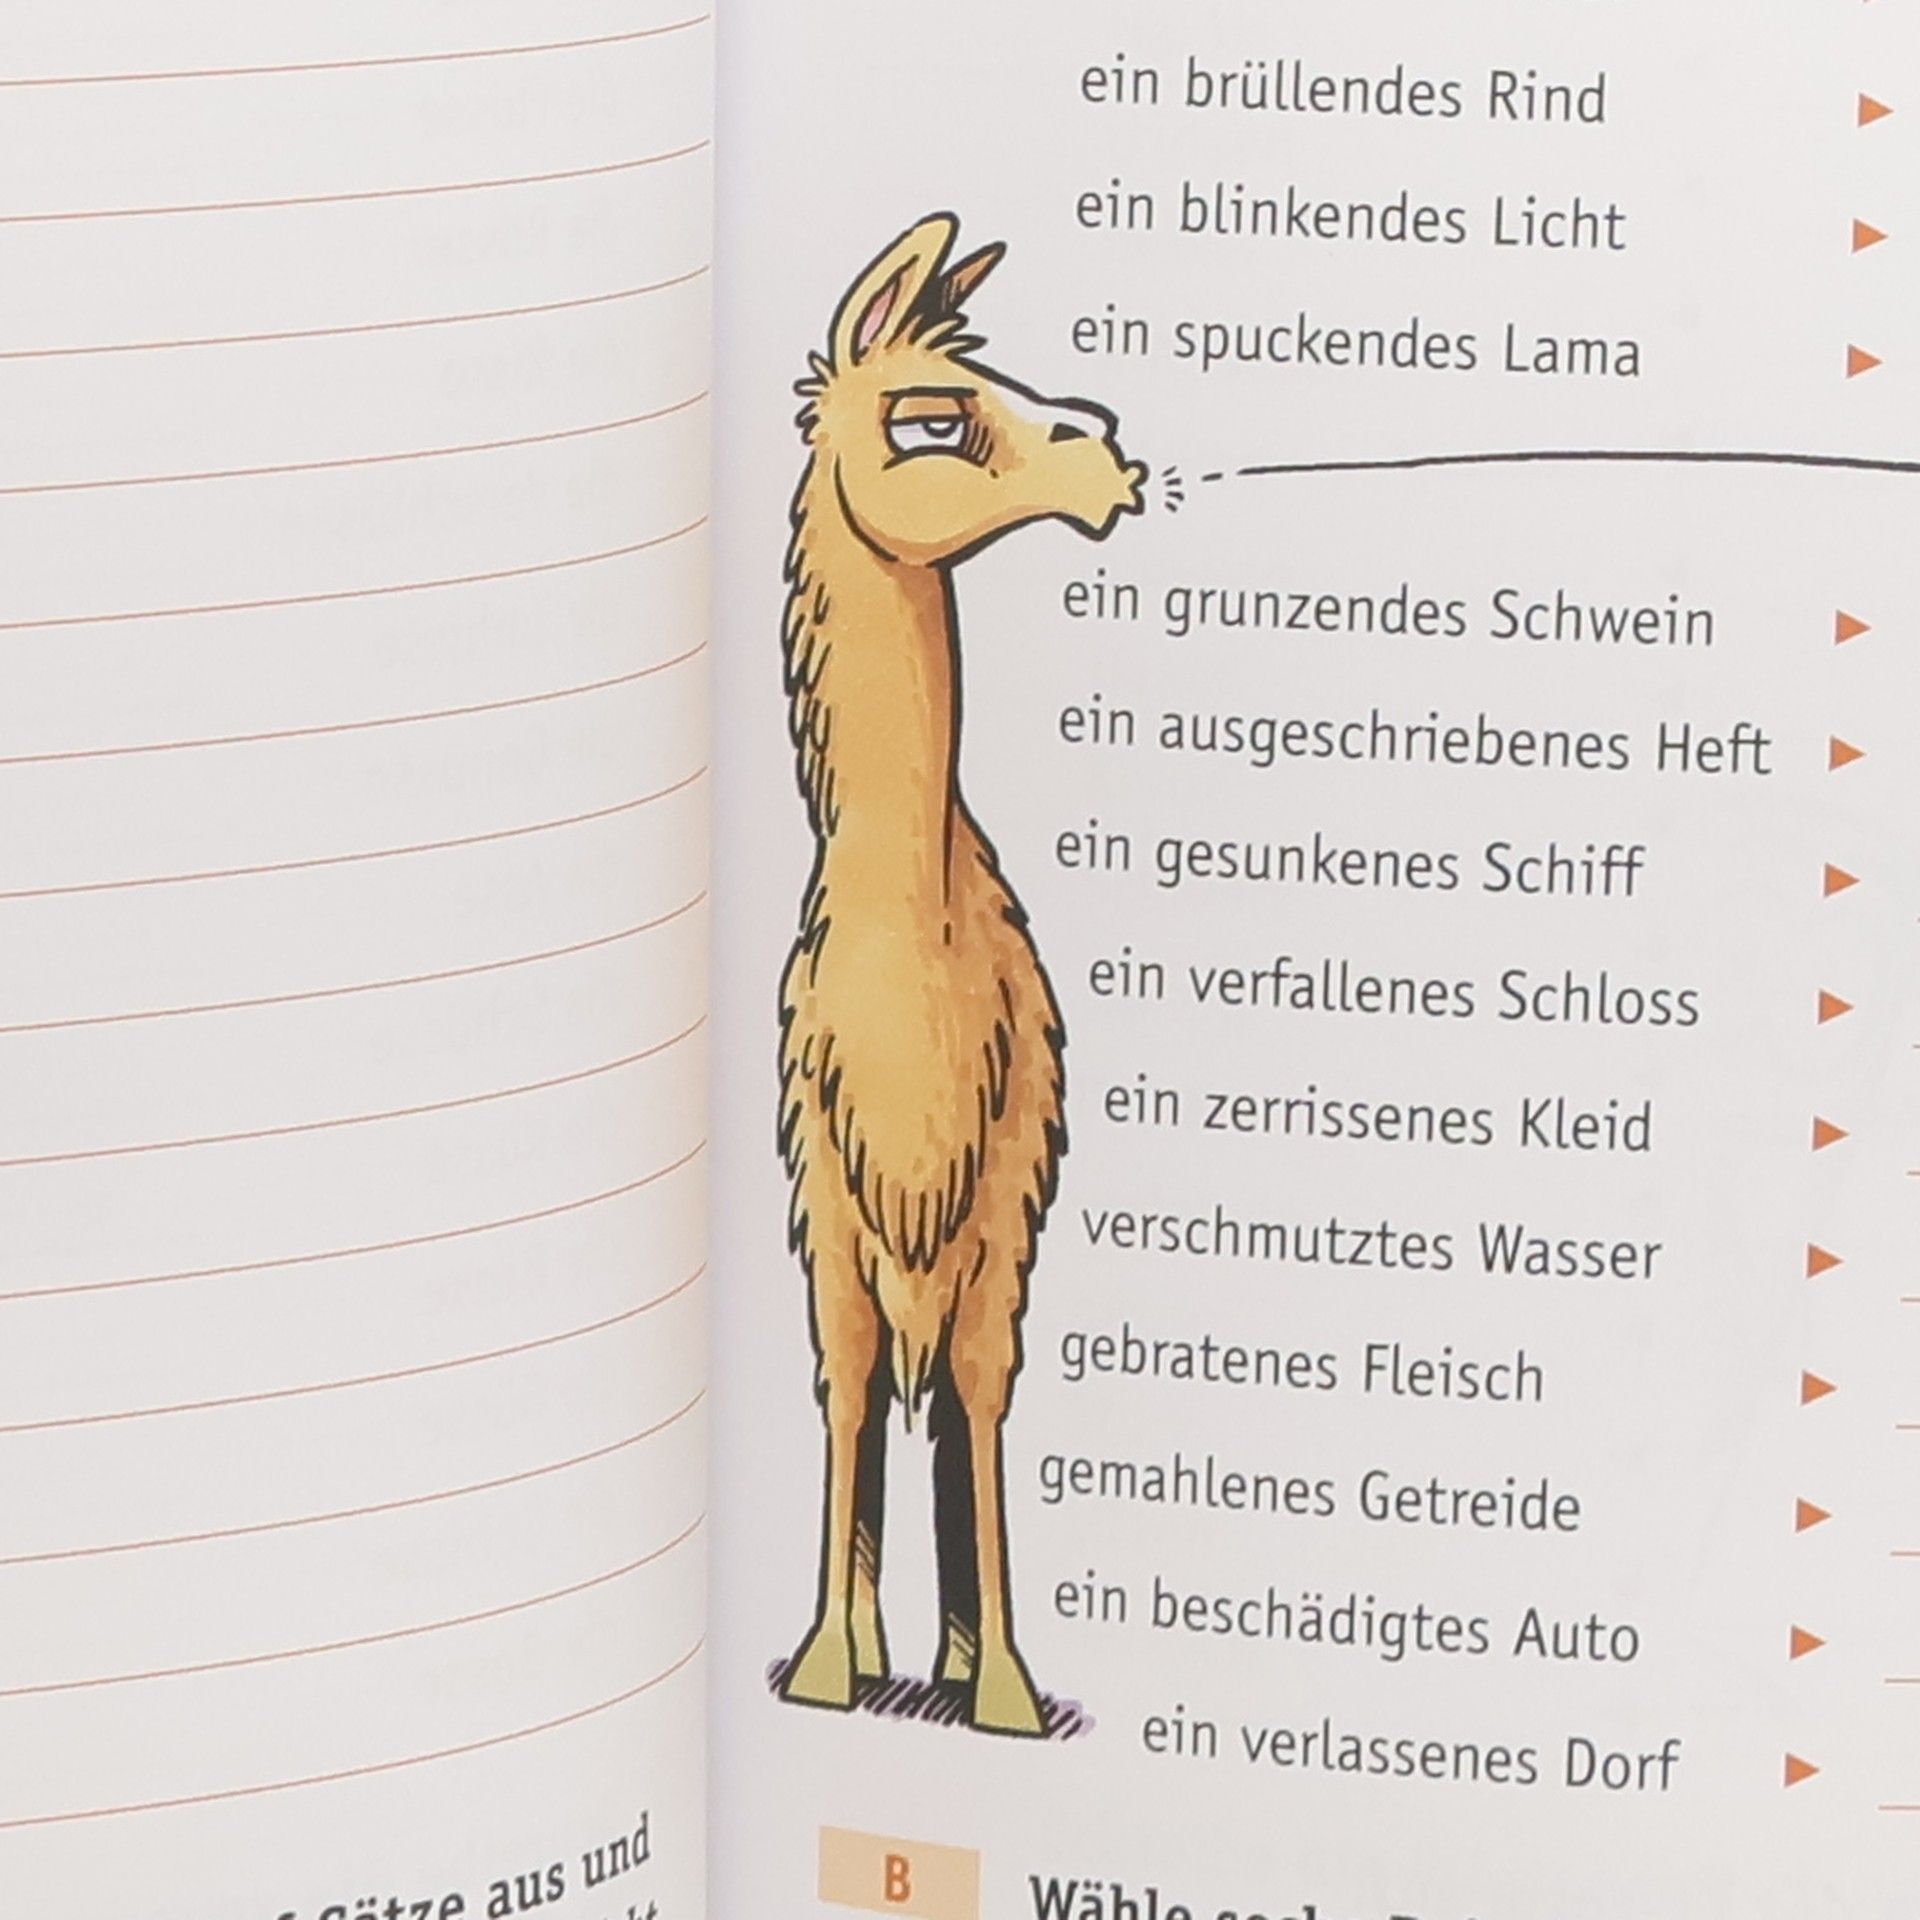 ein brüllendes Rind
ein blinkendes Licht
ein spuckendes Lama
ein grunzendes Schwein
ein ausgeschriebenes Heft
ein gesunkenes Schiff
ein verfallenes Schloss
ein zerrissenes Kleid
verschmutztes Wasser
gebratenes Fleisch
gemahlenes Getreide
ein beschädigtes Auto
ein verlassenes Dorf
Sätze aus und
B
Wähle